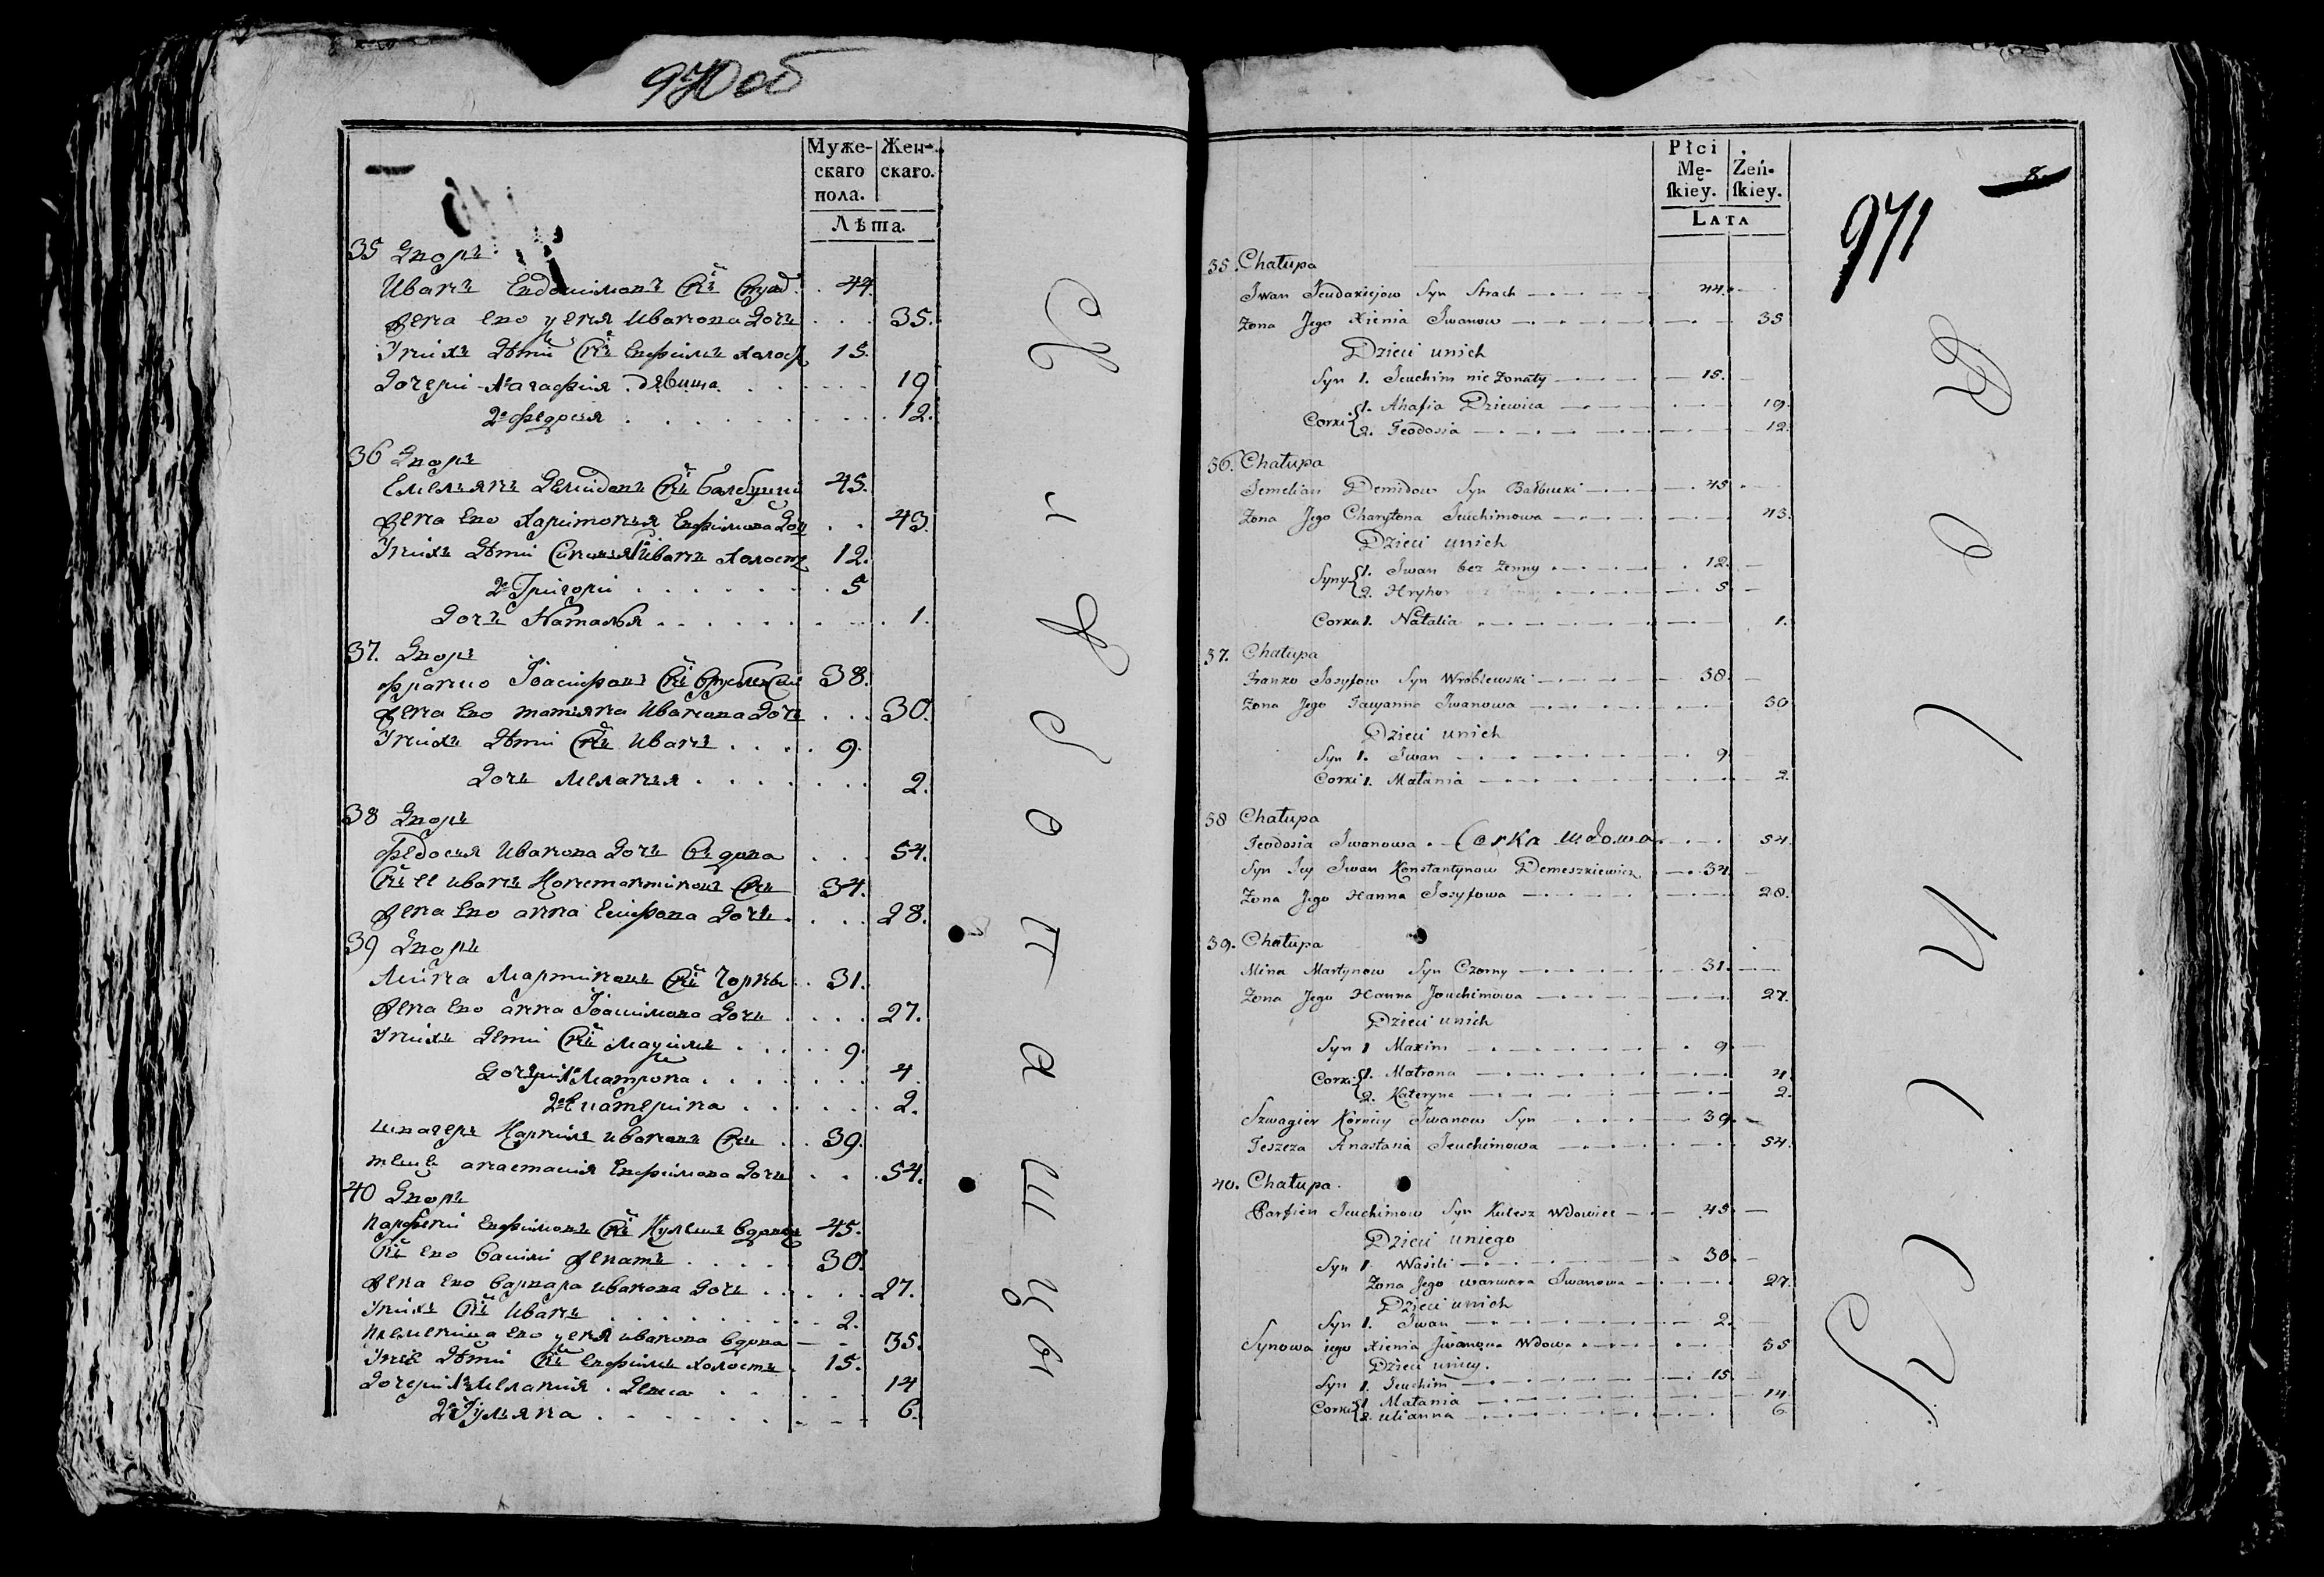 970об
Муже-
скаго
пола.
Жен-
скаго.
Лѣта.
35 Дворъ
Иванъ Евдокимовъ Снъ 44.
Жена ево Ксеня Иванова Дочь 35.
У нихъ Дѣти Снъ Евфимъ холост 15.
Дочери 1я агафия девица 19
2я Федосия 12.
36 Дворъ
Емельянъ Демидовъ Снъ 45.
Жена ево Харитонья Евфимова Доч 43.
У нихъ Дѣти Сыновья 1й Иванъ Холостъ 12.
2й Григори 5
Дочь Наталья 1.
37. Дворъ
Франко Иосифовъ Снъ Врублевски 38.
Жена ево татьяна Иванова Дочь 30.
У нихъ Дѣти Снъ Иванъ 9.
Дочь Меланья 2.
38 Дворъ
Федосья Иванова Дочь вдова 54.
Снъ ее иванъ Константиновъ Снъ 34.
Жена ево анна Есифова Дочь 28.
39 Дворъ
Мина Мартиновъ Снъ Чорны 31.
Жена ево анна Иоакимова Дочь 27.
У нихъ Дети Снъ Максимъ 9.
Дочери 1я Матрона 4.
2я Екатерина 2.
швагеръ Карнилъ ивановъ Снъ 39.
теща анастасия Евфимова Дочь 54.
40 Дворъ
Парфени Евфимовъ Снъ Кулешъ вдовец 45.
Снъ ево Васили женатъ 30.
Жена ево варвара иванова Дочь 27.
У нихъ Снъ Иванъ 2.
Племеница ево Ксеня иванова вдова 35.
У нее Дѣти Снъ Евфимъ холостъ 15.
Дочери 1я Мелания Девка 14
2я Ульяна 6.
Płci
Mę-
skiey.
Żeń-
skiey.
LATA
8
971
35. Chałupa
Iwan Ieudokiejow Syn Strach 44.
Zona Jego Xienia Iwanow 35
Dzieci unich
Syn 1. Ieuchim nie żonaty 15.
Corki 1. Ahafia Dziewica 19.
2. Teodosia 12.
36. Chałupa
Iemelian Demidow Syn Bałbucki 45
Zona Jego Charytona Ieuchimowa 43.
Dzieci unich
Syny 1. Iwan bez Żenny 12.
2. Hryhor 5.
Corka 1. Natalia 1.
37. Chałupa
Franko Iosyfow Syn Wróblewski 38.
Zona Jego Tacyanna Iwanowa 30
Dzieci unich
Syn 1. Iwan 9
Corki 1. Małania 2.
38 Chałupa
Teodosia Iwanowa Corka wdowa 54
Syn Iey Iwan Konstantynow Demeszkiewicz 34.
Zona Jego Hanna Iosyfowa 28.
39. Chałupa
Mina Martynow Syn Czorny 31.
Zona Jego Hanna Jouchimowa 27.
Dzieci unich
Syn 1 Maxim 9.
Corki 1. Matrona 4.
2. Kateryna 2.
Szwagier Korniey Iwanow Syn 39.
Teszcza Anastasia Ieuchimowa 54.
40. Chałupa.
Parfien Ieuchimow Syn Kulesz Wdowiec 45.
Dzieci uniego
Syn 1. Wasili 30.
Zona Jego warwara Iwanowa 27.
Dzieci unich
Syn 1. Iwan 2.
Synowa iego Xienia Iwanowa Wdowa 35
Dzieci uniey.
Syn 1. Ieuchim 15.
Corki 1. Małania 14.
2. ulianna 6.